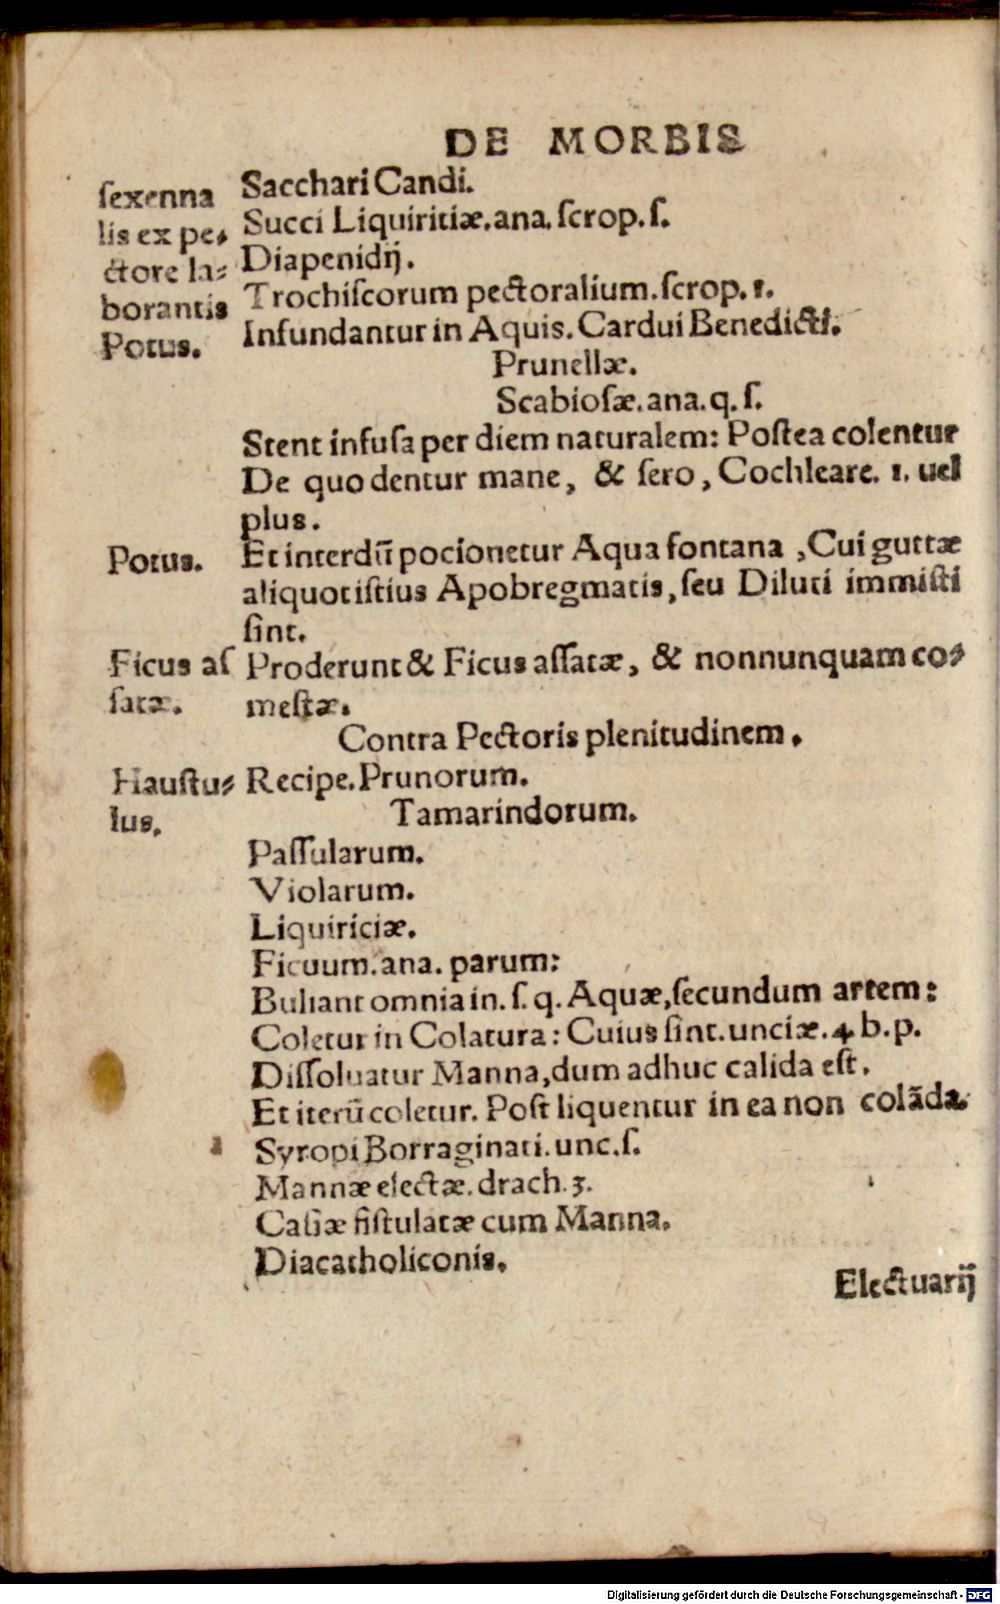 DE MORBIS
ſexenna
lis ex pe-
ctore la-
borantis
Potus.
Sacchari Candi.
Succi Liquiritiæ.ana.ſcrop.ſ.
Diapenidij.
Trochiſcorum pectoralium.ſcrop.1.
Infundantur in Aquis.Cardui Benedicti.
Prunellæ.
Scabioſæ.ana.q.ſ.
Stent infuſa per diem naturalem: Poſtea colentur
De quo dentur mane, & ſero, Cochleare.1.uel
plus.
Potus.
Et interdū pocionetur Aqua fontana, Cui guttæ
aliquotiſtius Apobregmatis, ſeu Diluti immiſti
ſint.
Ficus aſ
ſatæ.
Proderunt & Ficus aſſatæ, & nonnunquam co-
meſtæ.
Contra Pectoris plenitudinem.
Hauſtu-
lus.
Recipe.Prunorum.
Tamarindorum.
Paſſularum.
Violarum.
Liquiriciæ.
Ficuum.ana.parum:
Buliant omnia in.ſ.q.Aquæ,ſecundum artem:
Coletur in Colatura: Cuius ſint.unciæ.4 b.p.
Diſſoluatur Manna,dum adhuc calida eſt.
Et iterū coletur.Poſt liquentur in ea non colāda.
Syropi Borraginati.unc.ſ.
Mannæ electæ.drach.3.
Caſiæ fiſtulatæ cum Manna.
Diacatholiconis.
Electuarij
Digitalisierung gefördert durch die Deutsche Forschungsgemeinschaft - DFG